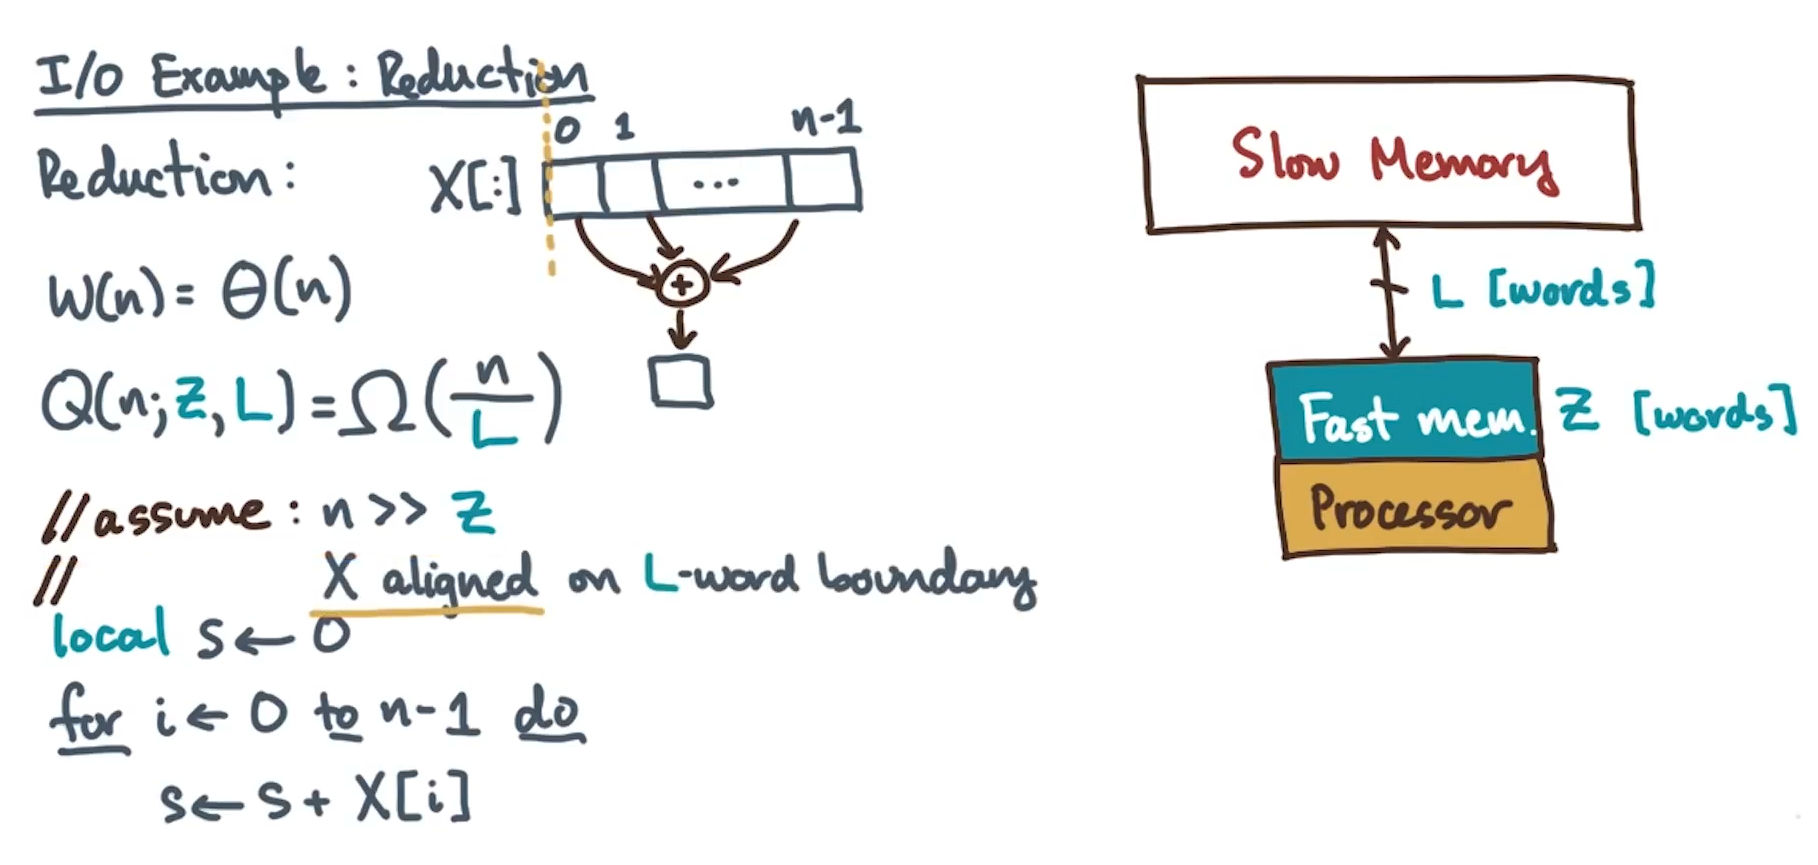 I/O Example: Reduction
0 1 n-1
Reduction: X[:] ...
+
W(n) = Θ(n)
Q(n; Z, L) = Ω(n/L)
//assume: n >> Z
// X aligned on L-word boundary
local s ← 0
for i ← 0 to n-1 do
s ← s + X[i]
Slow Memory
L [words]
Fast mem. Z [words]
Processor